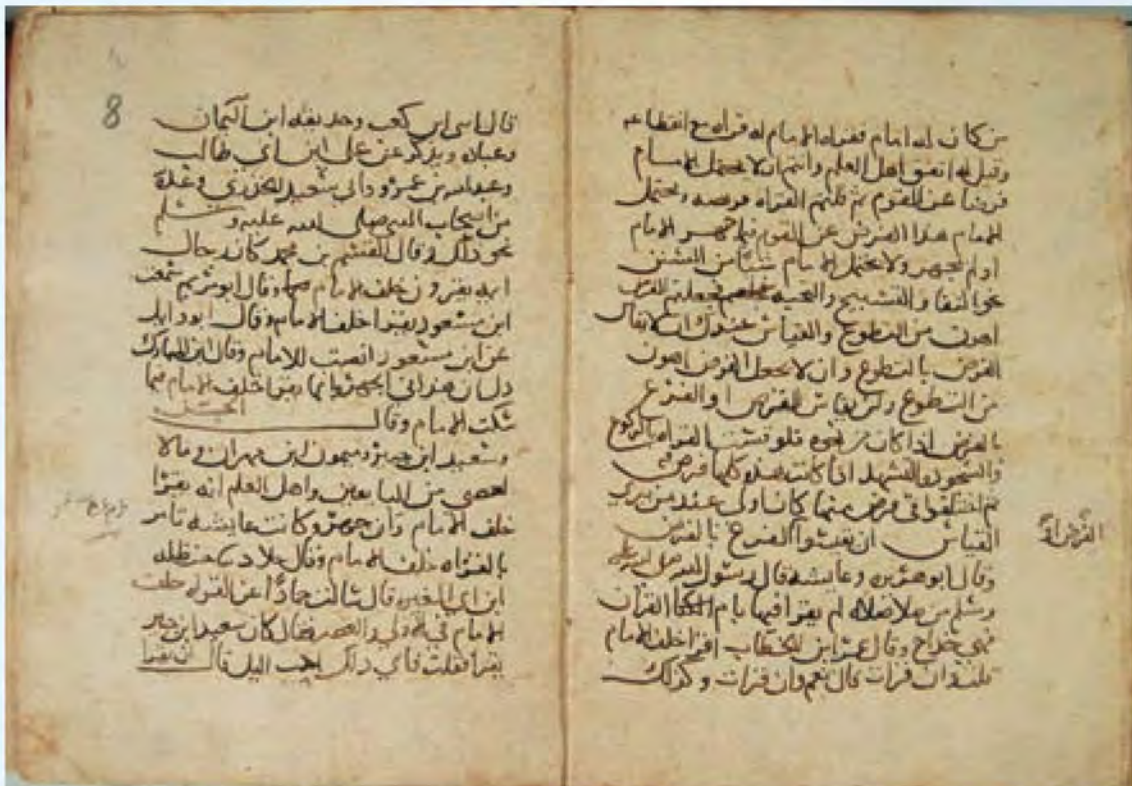 من كان له امام فقراه الامام له قراه مع انقطاعه
وقيل له اتفق اهل العلم وانتم ان لا يحتمل الامام
فرضا عن القوم ثم قلتم القراه فريضه ويحتمل
الامام هذا الفرض عن القوم فيما جهر الامام
او لم يجهر ولا يحتمل الامام شيا من السنن
نحو الثنا والتسبيح والتحيه فجعلتم الفرض
اهون من التطوع والقياس عندك ان لا يقاس
الفرض بالتطوع وان لا يجعل الفرض اهون
من التطوع وان يقاس الفرض او الفرع
بالفرض اذا كان من نحوه فلو قست القراه بالركوع
والسجود والتشهد اذا كانت هذه كلها فرض
ثم اختلفوا في فرض منها كان اولى عند من يرى
القياس ان يقيسوا الفرض بالفرض
القراه
وقال ابو هريره وعايشه قال رسول الله صلى الله عليه
وسلم من صلا صلاه لم يقرا فيها بام القران
فهي خداج وقال عمر ابن الخطاب اقرا خلف الامام
قلت وان قرات قال نعم وان قرات وكذلك
8
قال ابي ابن كعب وحذيفه ابن اليمان
وعباده ويذكر عن علي ابن ابي طالب
وعبدالله بن عمرو وابي سعيد الخدري وعدة
من اصحاب النبي صلى الله عليه وسلم
نحو ذلك وقال القسم بن محمد كان رجال
ايمه يقرون خلف الامام وقال ابو مريم سمعت
ابن مسعود يقرا خلف الامام وقال ابو وايل
عن ابن مسعود انصت للامام وقال ابن المبارك
دل ان هذا في الجهر وانما يقرا خلف الامام فيما
سكت الامام وقال الحسن
وسعيد ابن جبير وميمون ابن مهران وما لا
احصي من التابعين واهل العلم انه يقرا
خلف الامام وان جهر وكانت عايشه تامر
بالقراه خلف الامام وقال خلاد حنظله
ابن ابي المغيره قال سالت حمادا عن القراه خلف
الامام في الاولى والعصر فقال كان سعيد ابن جبير
يقرا فقلت فاي ذلك احب اليك قال ان تقرا